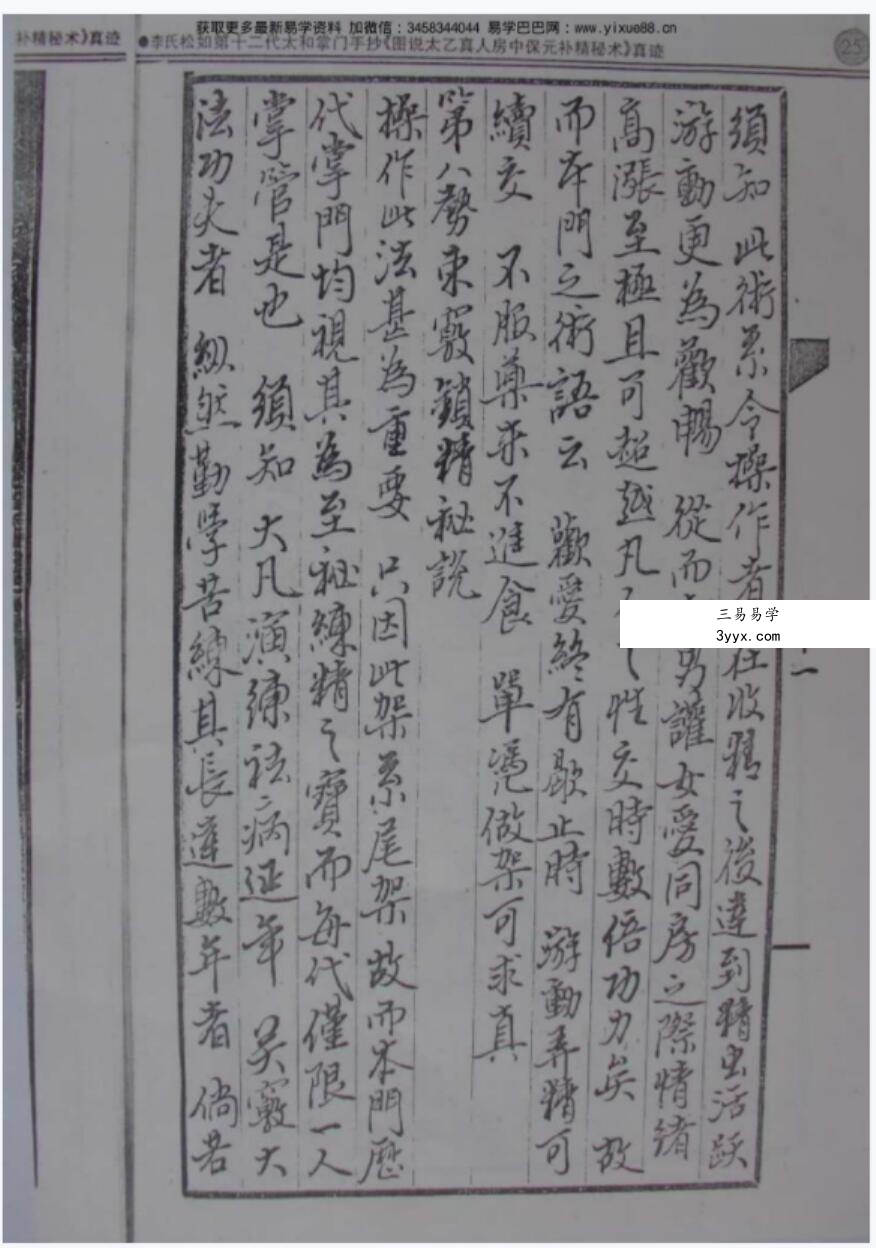 获取更多最新易学资料 加微信：3458344044 易学巴巴网：www.yixue88.cn
补精秘术》真迹
●李氏松如第十二代太和掌门手抄《图说太乙真人房中保元补精秘术》真迹
25
三易易学
3yyx.com
須知 此術系令操作者在收精之後達到精虫活跃
游動更為歡暢 從而 男讙女愛同房之際情緒
高漲至極且可超越凡 性交時數倍功力矣 故
而本門之術語云 歡愛終有歇止時 游動弄精可
續交 不服藥来不進食 單憑做架可求真
第八勢 束竅鎖精祕說
操作此法甚為重要 只因此架系尾架 故而本門歷
代掌門均視其為至祕練精之寶而每代僅限一人
掌管是也 須知 大凡演練祛病延年 关竅大
法功夫者 縱然勤學苦練其長達數年者 倘若